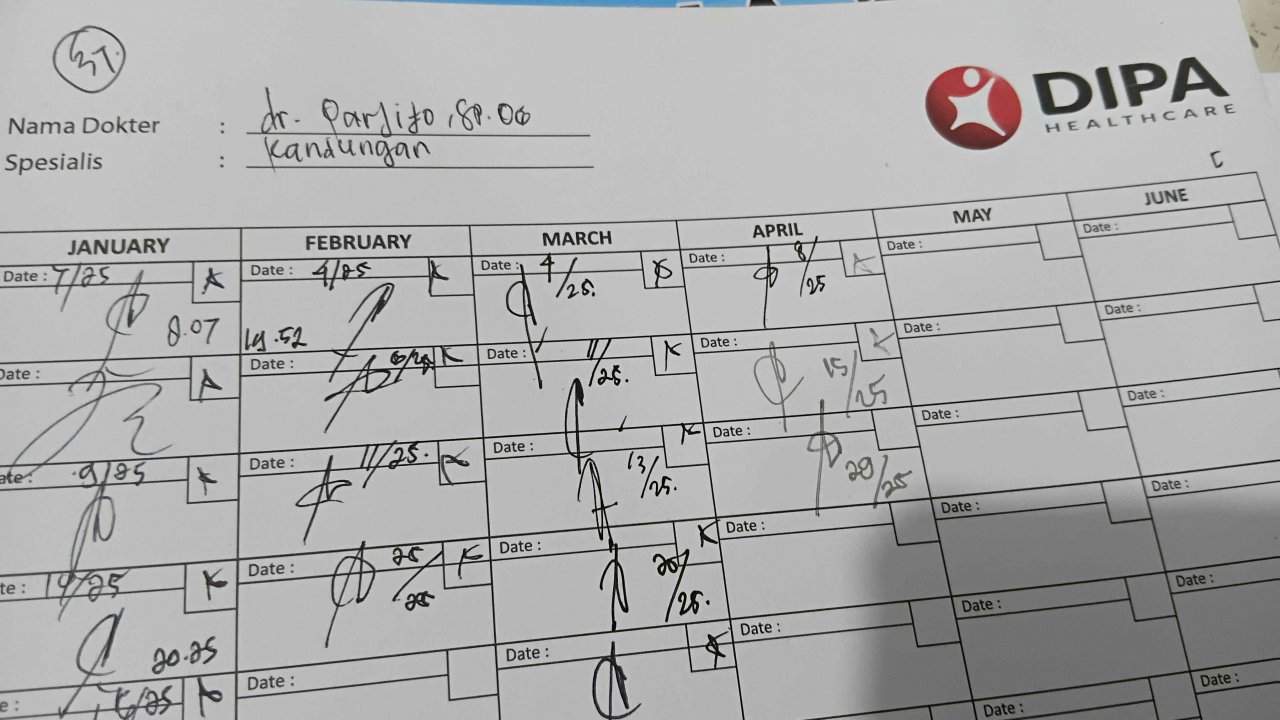 37.
DIPA
HEALTHCARE
Nama Dokter : dr. Parjito, SP.OG
Spesialis : Kandungan
JANUARY FEBRUARY MARCH APRIL MAY JUNE
Date : 7/25 K Date : 4/25 K Date : 4/25. Date : 8/25 K Date : Date :
8.07 19.52
Date : Date : 6/25 K Date : 11/25. K Date : 15/25 K Date : Date :
Date : 9/25 K Date : 11/25. K Date : 13/25. K Date : 29/25 Date : Date :
Date : 14/25 K Date : 25/25 K Date : 20/25. K Date : Date : Date :
20.25
Date : Date : K Date : Date : Date :
Date : Date :